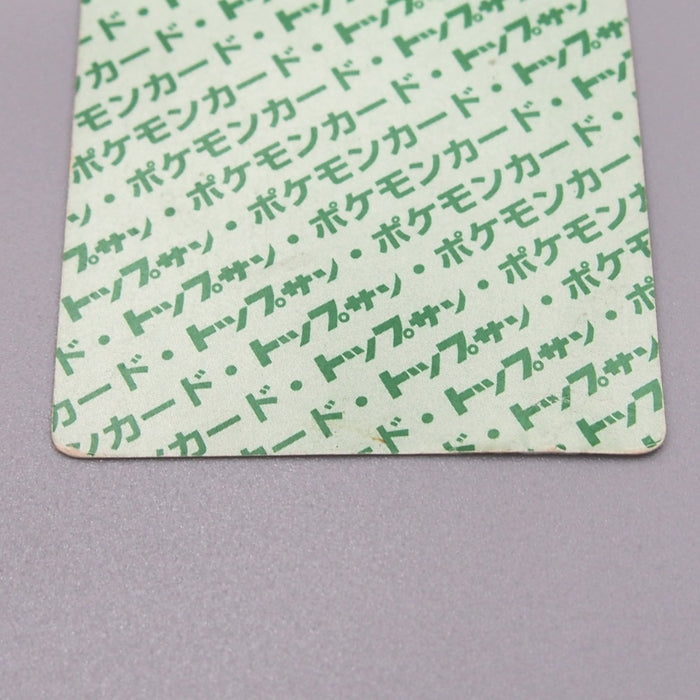 ンカード・トップ
モンカード・トップサン
ポケモンカード・トップサン
ン・ポケモンカード・トップサン
プサン・ポケモンカード・トップサン
トップサン・ポケモンカード・
ド・トップサン・ポケモンカード・
カード・トップサン・ポケモンカー
ンカード・トップサン・ポケモン
カード・トップサン・ポケ
ード・トップサン・ポ
ド・トップサン
・トップ